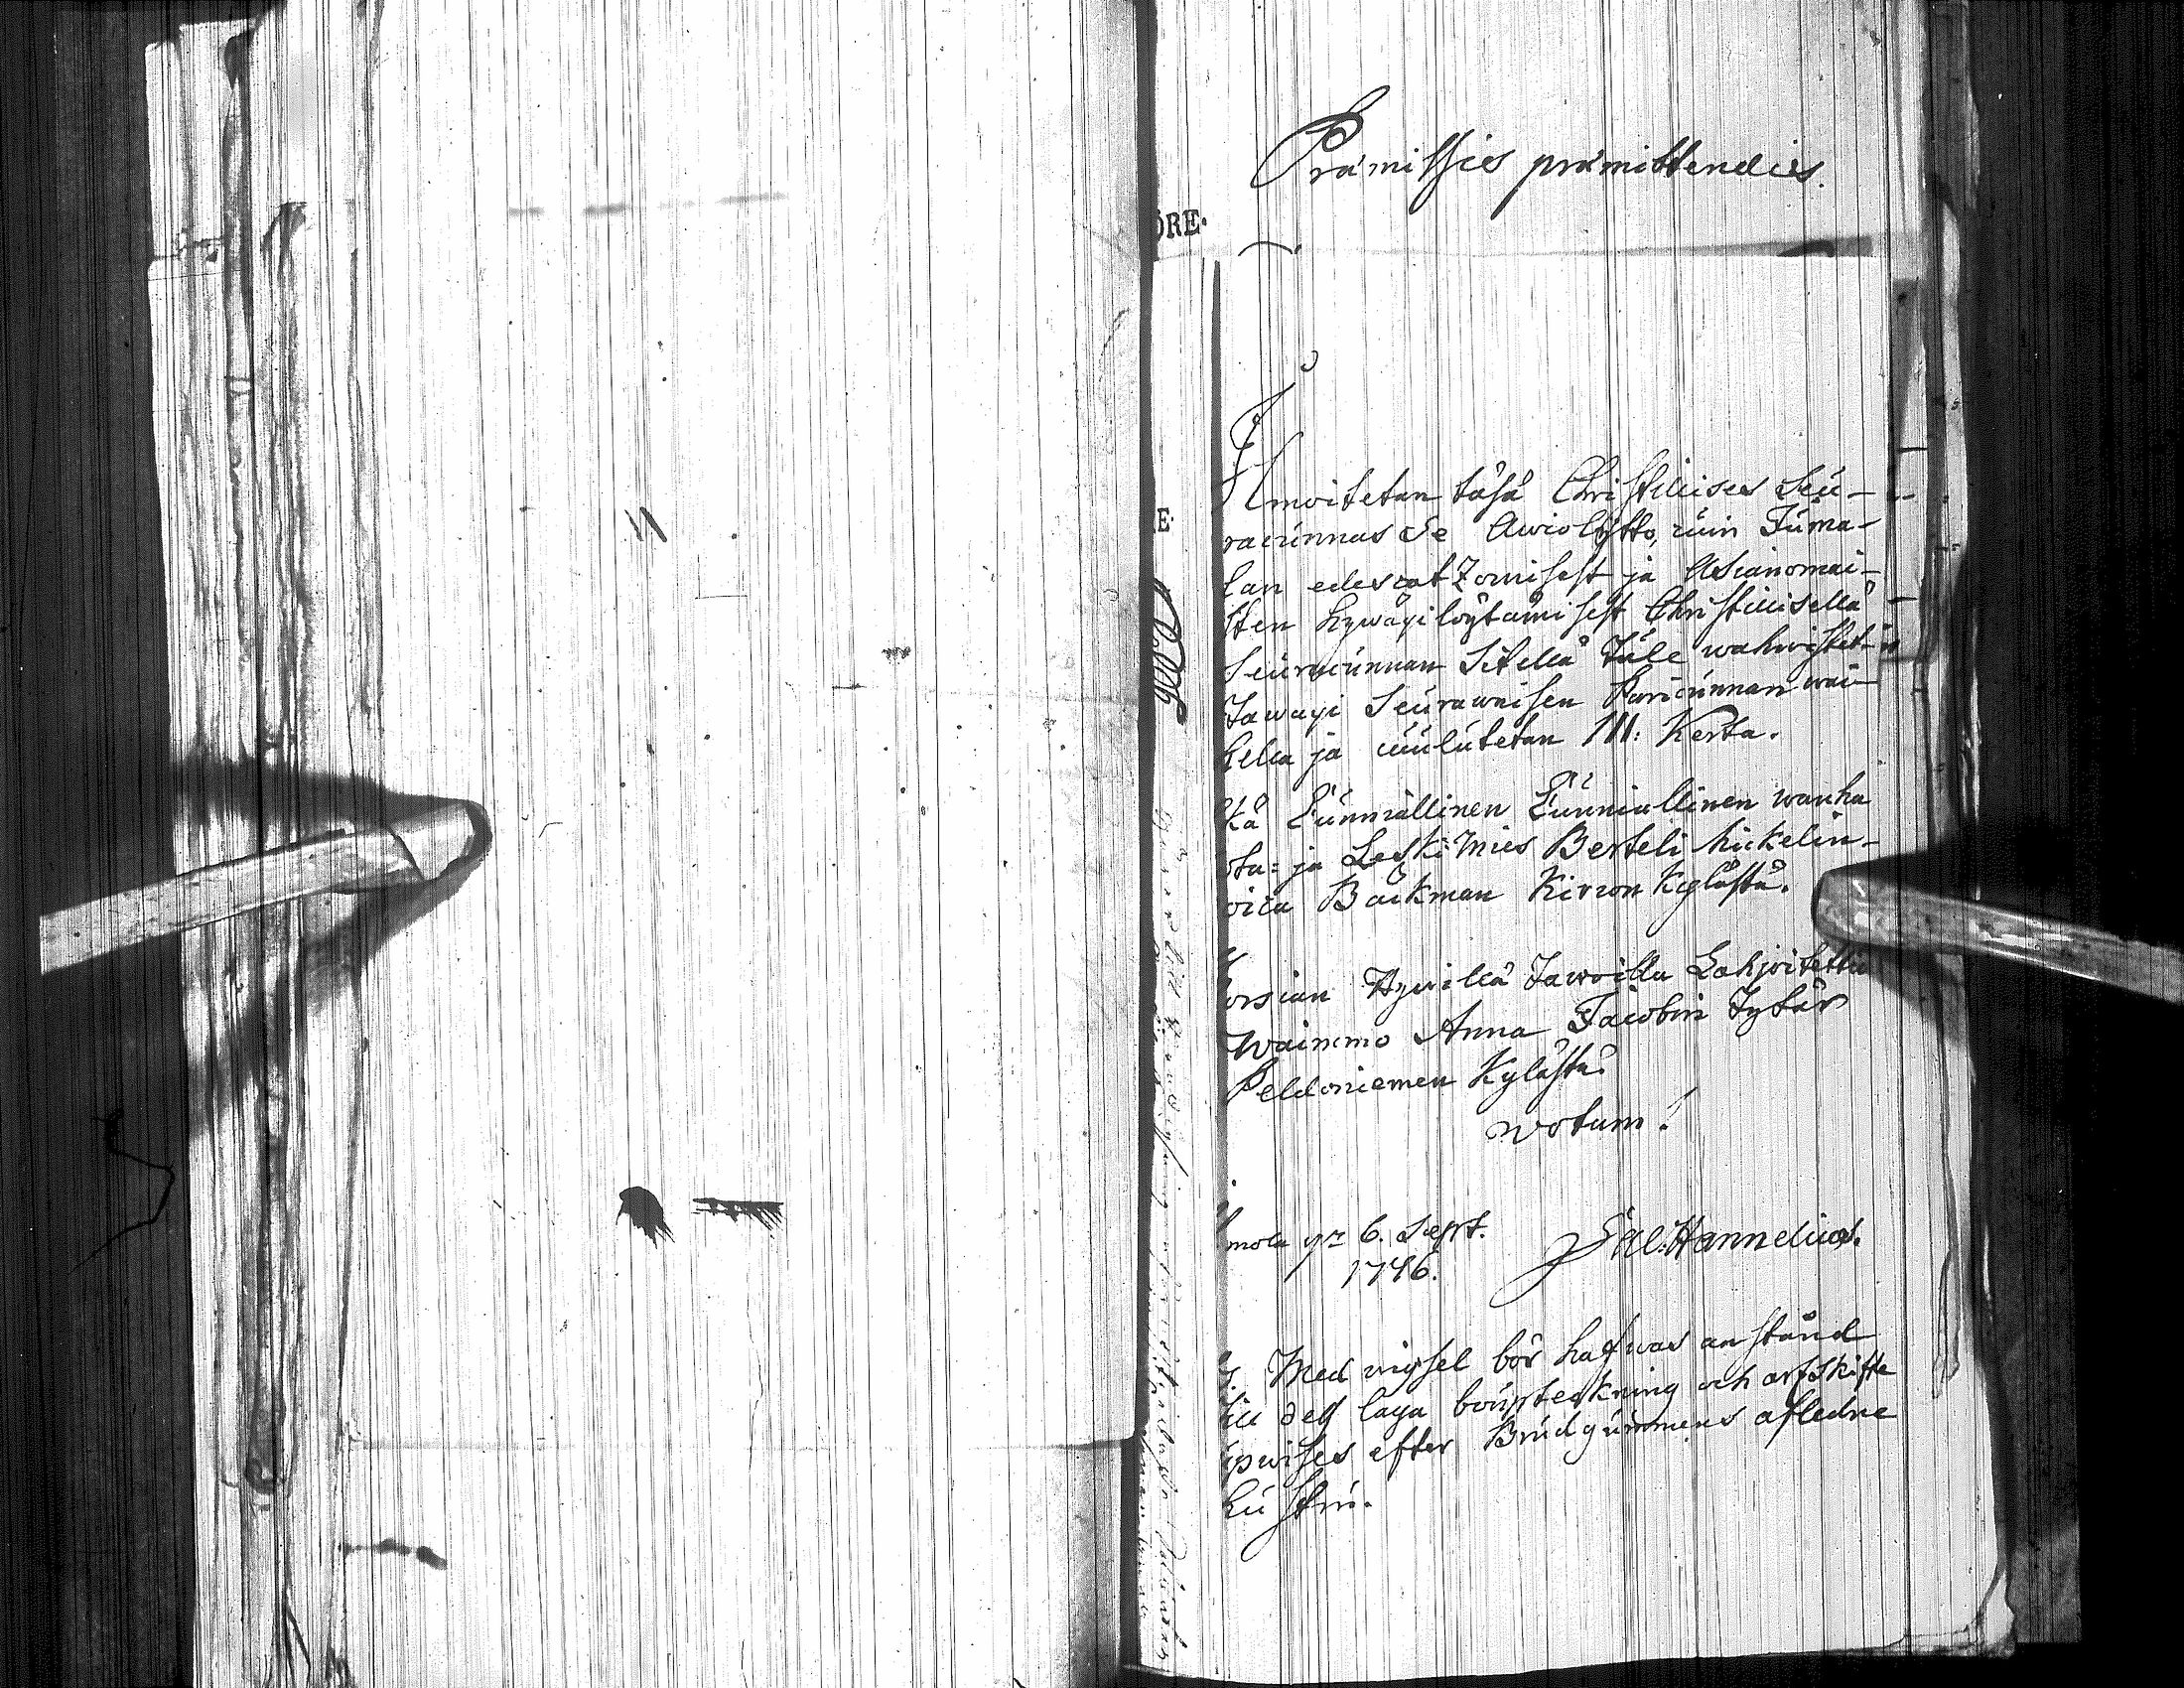 Præmissis præmittendis.
ÖRE.
Ilmoitetan täsä Christillises Seu-
racunnas Se Awioliitto, cuin Juma-
lan edescatzomisest ja Asianomai-
sten hywäxilöytämisest Christillisellä
Seuracunnan Sitellä Tule wahwistet-
Tawaxi Seurawaisen Paricunnan wai-
hella ja cuulutetan III: Kerta.
kä Cunniallinen Cunniallinen wanha
ota: ja Leski Mies Berteli Mickelin-
oica Backman Kirron Kylästä.
orsian Hywillä Tawoilla Lahjoitettu
Waimmo Anna Jacobin Tytär
Peldoniemen Kylästä.
Wotum!
mola 6. Sept.
1746.
Hannelius.
Med wigsel bör hafwas anstånd
till dess laga boupteckning och arfskifte
upwises efter Brudgummens afledne
hustru.